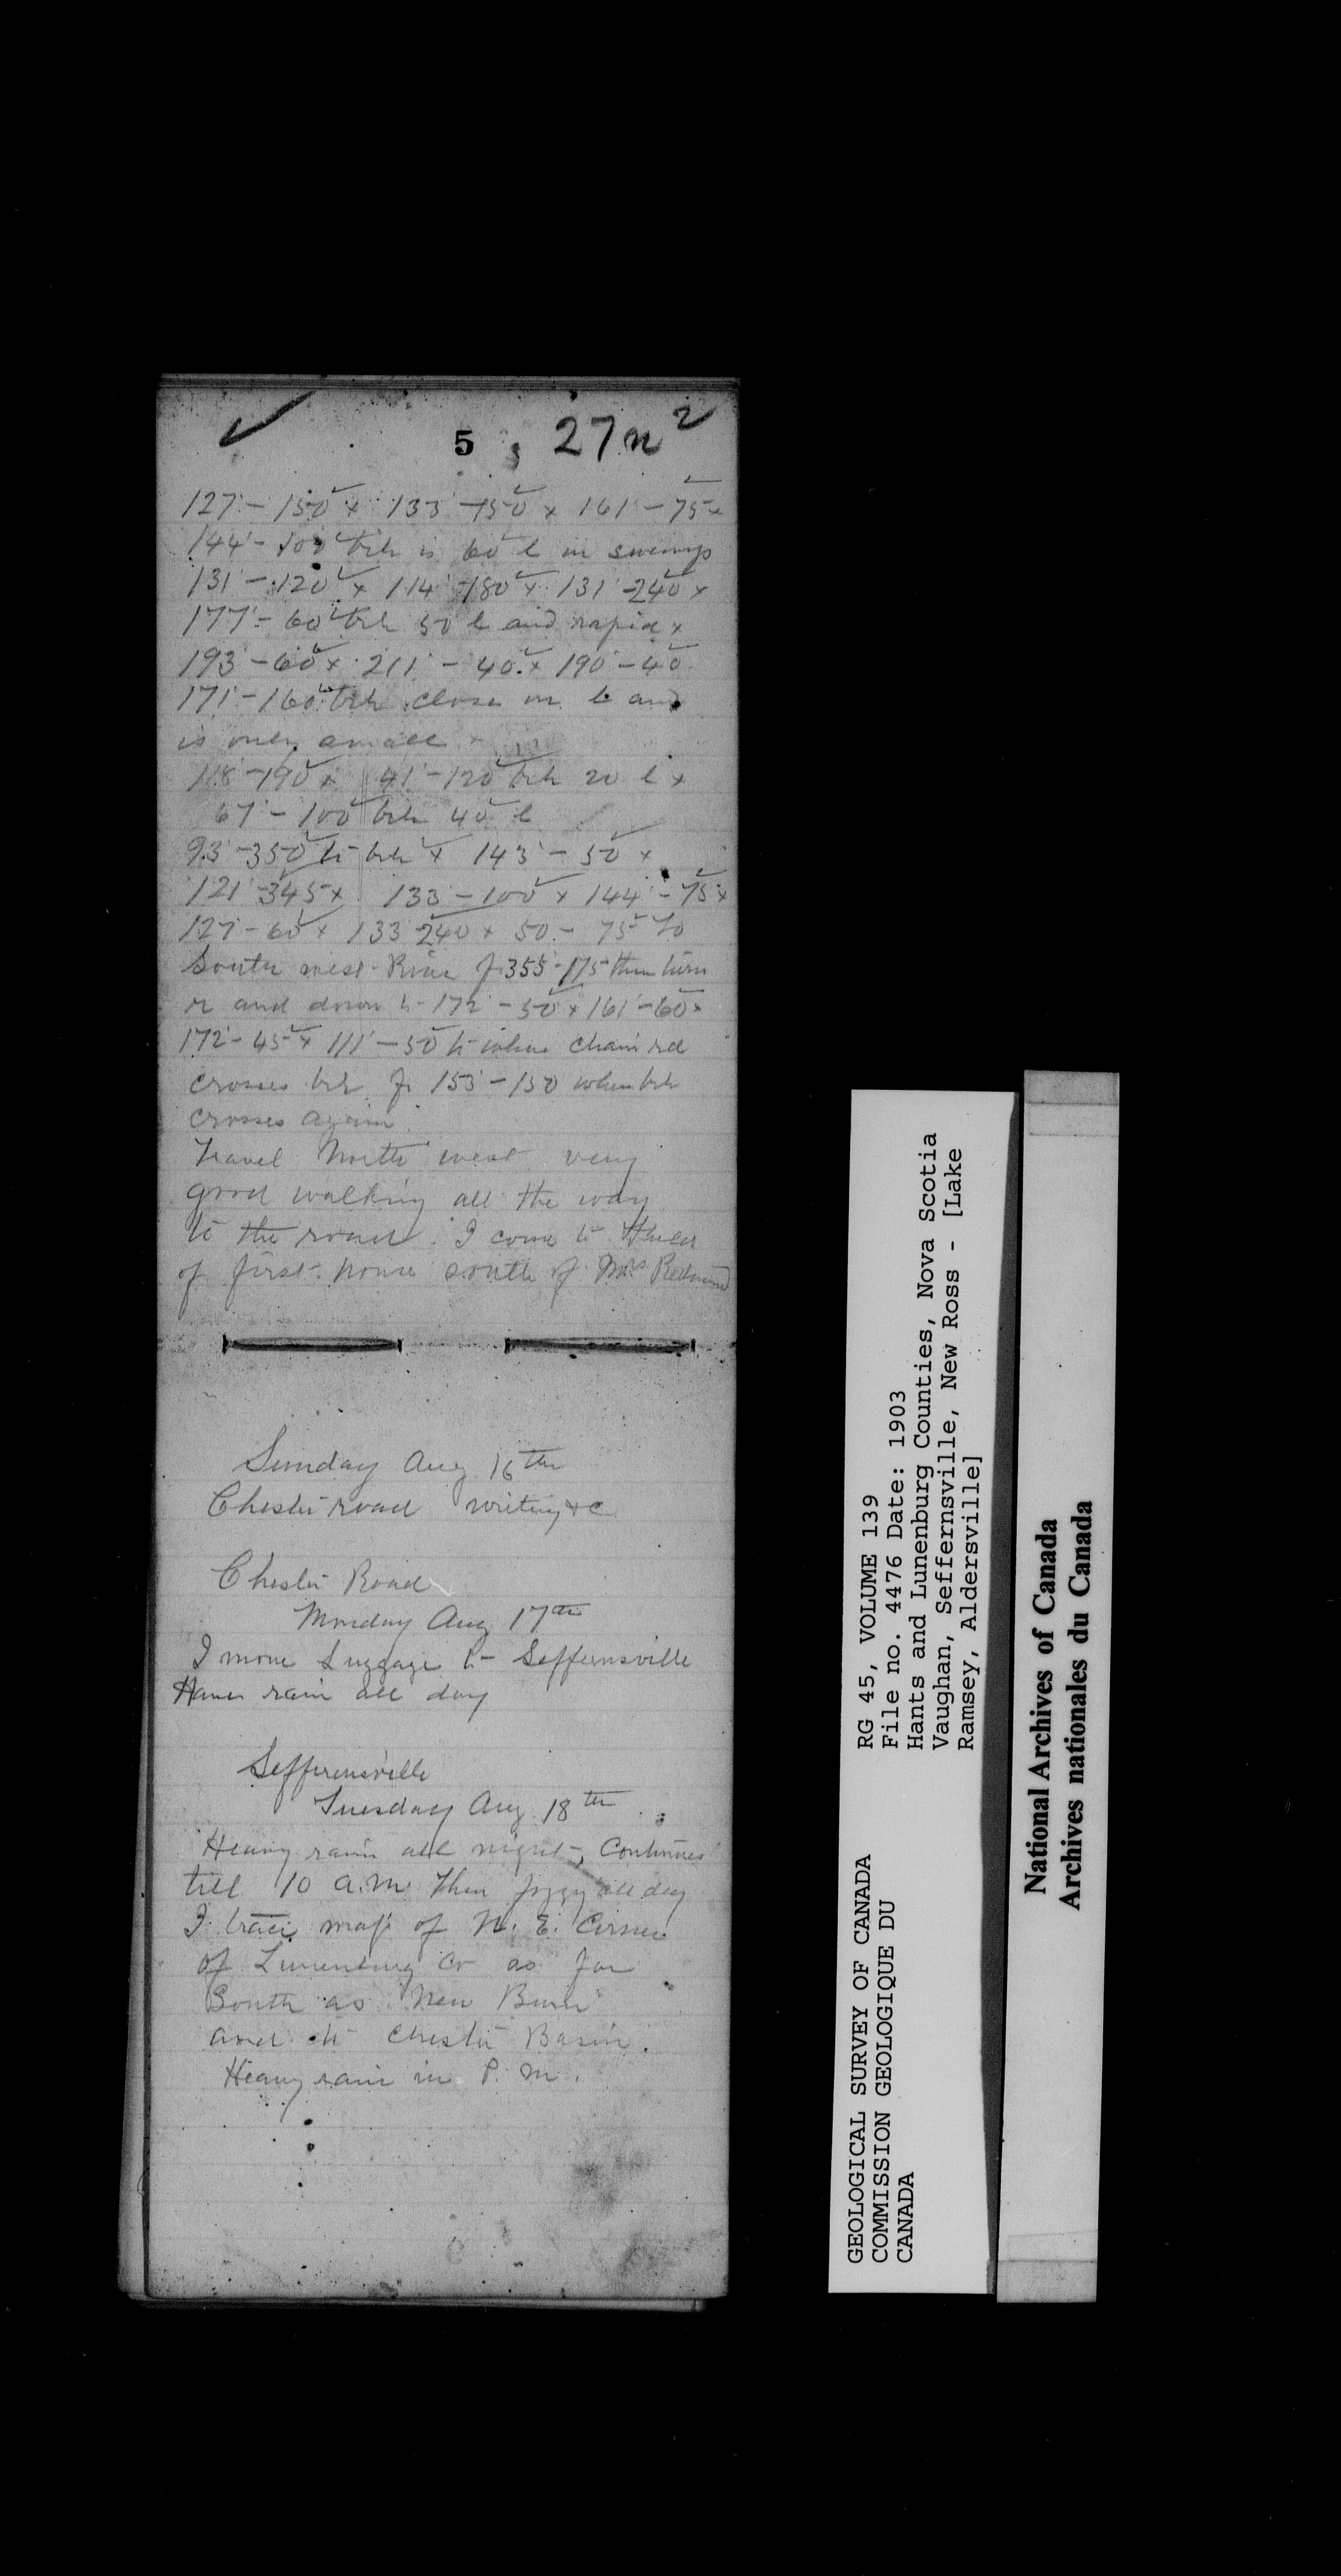 5 27 n 2
127 - 150 x 133 - 150 x 161 - 75 x
144 - 100 brk is 60 l in swamp
131 - 120 x 114 - 180 x 131 - 240 x
177 - 60 brk 50 l and rapid x
193 - 60 x 211 - 40 x 190 - 40
171 - 160 brk close on l and
is only small
118 - 190 x 91 - 120 brk 20 l x
67 - 100 brk 40 l
93 - 350 to brk x 143 - 50 x
121 - 345 x 133 - 100 x 144 - 75 x
127 - 60 x 133 240 x 50 - 75 to
South west River fr 355 - 175 then turn
r and down to 172 - 50 x 161 - 60 x
172 - 45 x 111 - 50 to where chain rd
crosses brk fr 153 - 150 when brk
crosses again
Travel North west very
good walking all the way
to the road. I come to
of first house south of Mrs Redmond
Sunday Aug 16th
Chester road writing &c
Chester Road
Monday Aug 17th
I move Luggage to Seffernsville
Have rain all day
Seffernsville
Tuesday Aug 18th
Heavy rain all night, Continues
till 10 a.m. then foggy all day
I trace map of N. E. Corner
of Lunenburg Co as far
South as New Burn
and to Chester Basin.
Heavy rain in P. M.
GEOLOGICAL SURVEY OF CANADA
COMMISSION GEOLOGIQUE DU
CANADA
RG 45, VOLUME 139
File no. 4476 Date: 1903
Hants and Lunenburg Counties, Nova Scotia
Vaughan, Seffernsville, New Ross - [Lake
Ramsey, Aldersville]
National Archives of Canada
Archives nationales du Canada